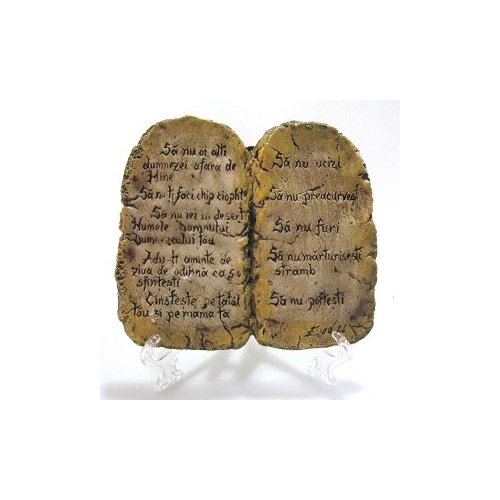 Să nu ai alti
dumnezei afara de
Mine
Să nu ti faci chip cioplit
Să nu iei in desert
Numele Domnului
Dumnezeului tău
Adu-ti aminte de
ziua de odihnă ca s-o
sfintesti
Cinsteste pe tatăl
tău si pe mama ta
Să nu ucizi
Să nu preacurvesti
Să nu furi
Să nu mărturisesti
strâmb
Să nu poftesti